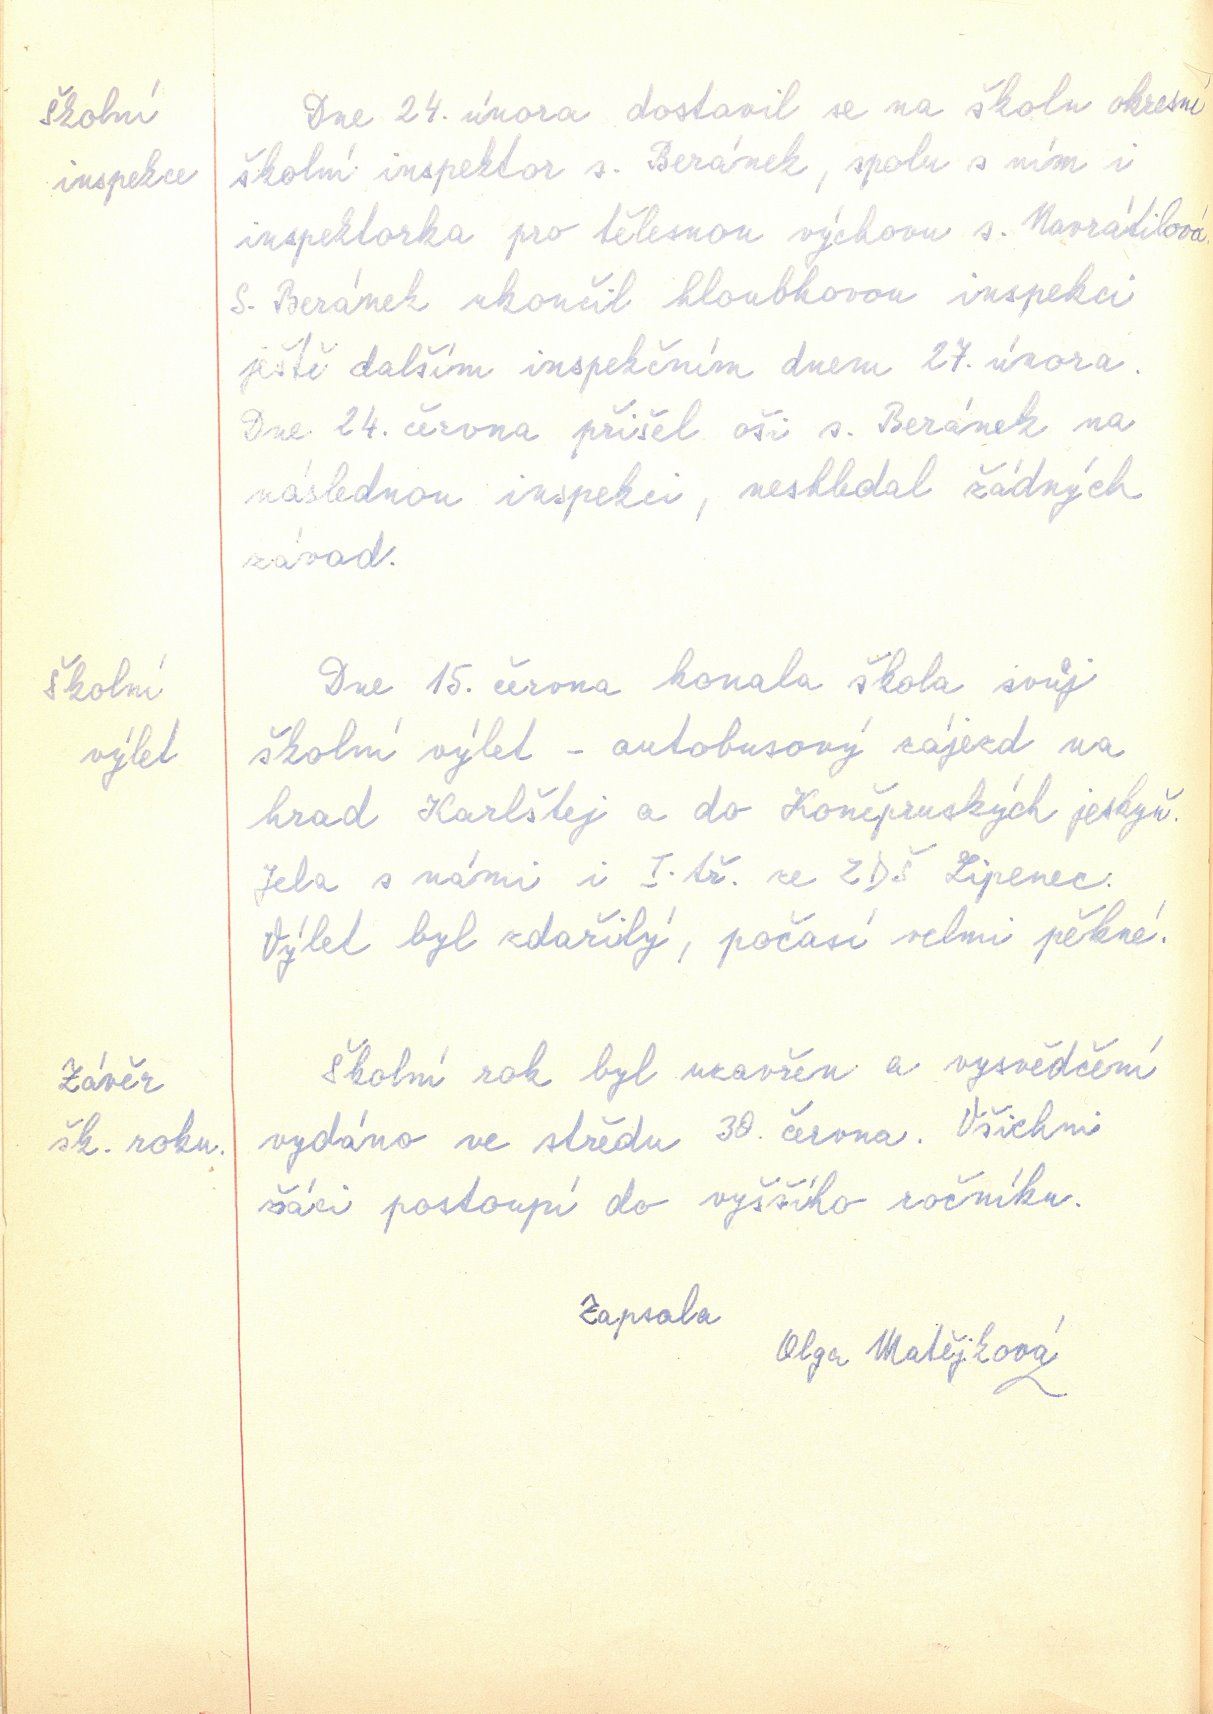 Školní
inspekce
Dne 24. února dostavil se na školu okresní
školní inspektor s. Beránek, spolu s ním i
inspektorka pro tělesnou výchovu s. Navrátilová.
S. Beránek ukončil hloubkovou inspekci
ještě dalším inspekčním dnem 27. února.
Dne 24. června přišel oši s. Beránek na
následnou inspekci, neshledal žádných
závad.
Školní
výlet
Dne 15. června konala škola svůj
školní výlet – autobusový zájezd na
hrad Karlštej a do Koněpruských jeskyň.
Jela s námi i I. tř. ze ZDŠ Lipenec.
Výlet byl zdařilý, počasí velmi pěkné.
Závěr
šk. roku.
Školní rok byl uzavřen a vysvědčení
vydáno ve středu 30. června. Všichni
žáci postoupí do vyššího ročníku.
Zapsala
Olga Matějková